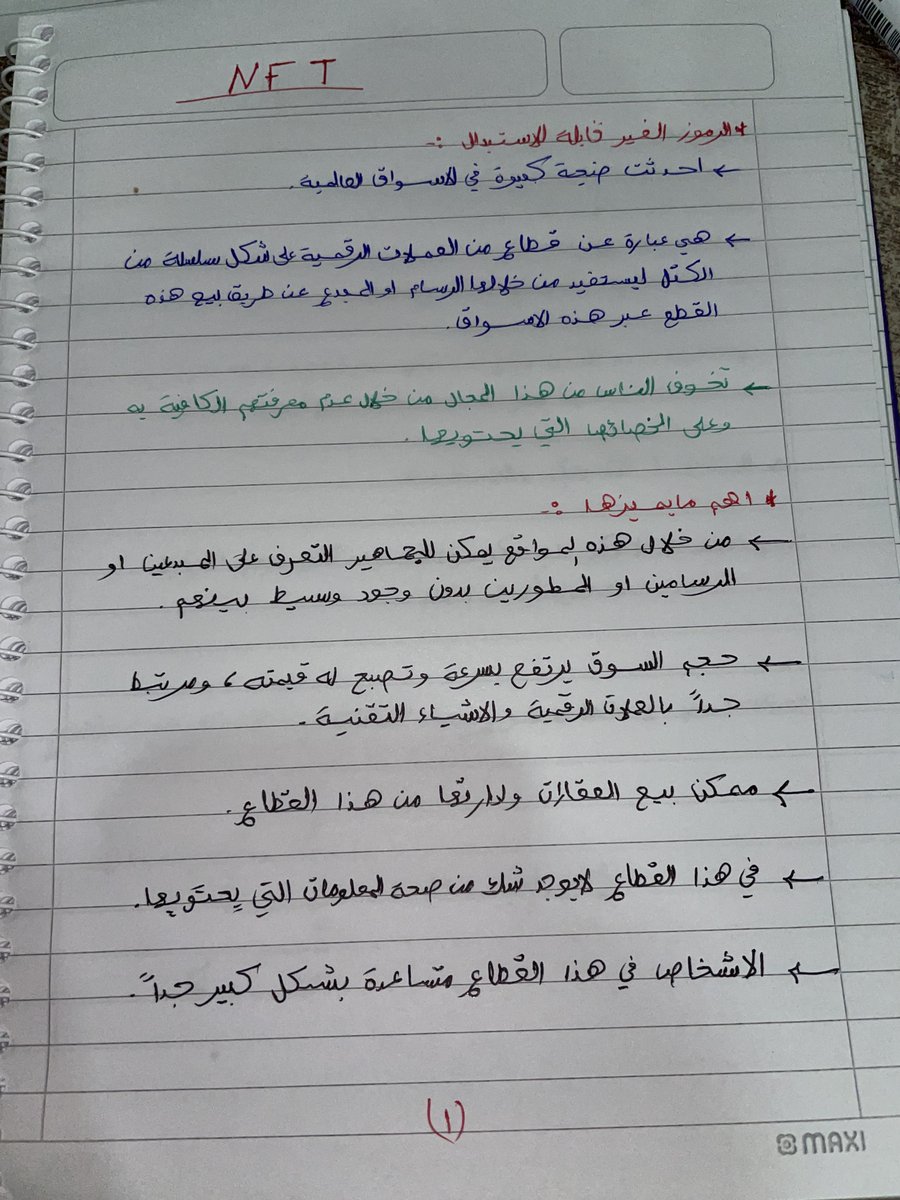 NFT
* الرموز الغير قابلة للاستبدال :-
← احدثت ضجة كبيرة في الاسواق العالمية.
← هي عبارة عن قطاع من العملات الرقمية على شكل سلسلة من
الكتل ليستفيد من خلالها الرسام او المبدع عن طريق بيع هذه
القطع عبر هذه الاسواق.
← تخوف الناس من هذا المجال من خلال عدم معرفتهم الكافية به
وعلى الخصائص التي يحتويها.
* اهم مايميزها :-
← من خلال هذه المواقع يمكن للجماهير التعرف على المبدعين او
الرسامين او المطورين بدون وجود وسيط بينهم.
← حجم السوق يرتفع بسرعة وتصبح له قيمته، ومرتبط
جداً بالعملات الرقمية والاشياء التقنية.
← ممكن بيع العقارات وادارتها من هذا القطاع.
← في هذا القطاع لايوجد شك من صحة المعلومات التي يحتويها.
← الاشخاص في هذا القطاع متساعدة بشكل كبير جداً.
(١)
MAXI